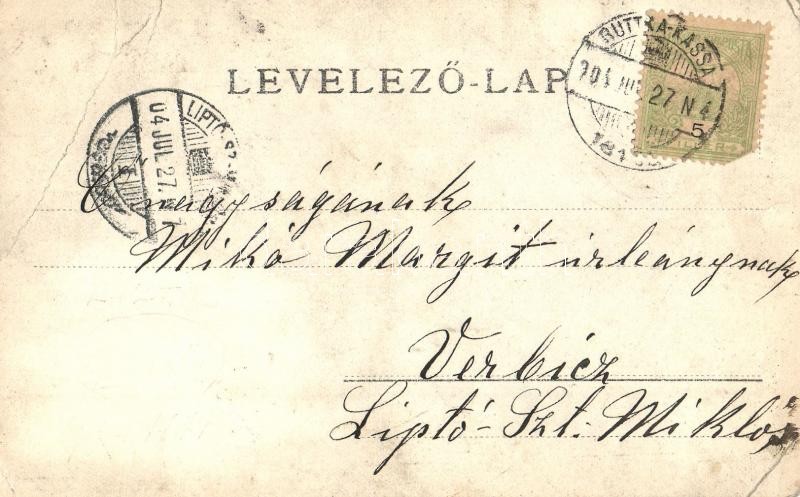 LEVELEZŐ-LAP
RUTTKA-KASSA
904 JUL 27 N 4
5
LIPTÓ-SZ
04 JUL. 27.
Ő nagyságának
Mikó Margit úrleánynak
Verbicz
Liptó-Szt. Miklós